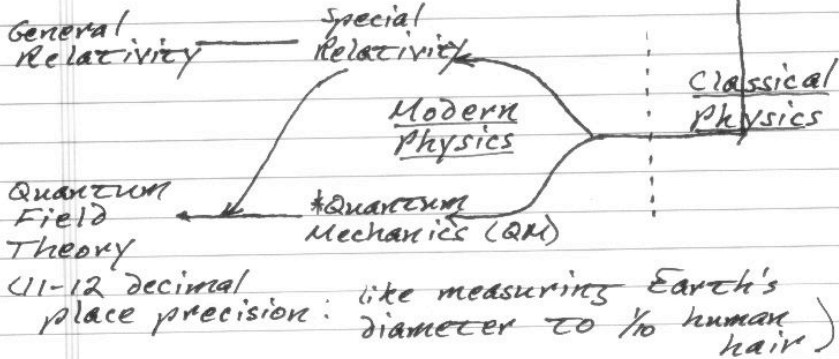 General
Relativity
Special
Relativity
Classical
Physics
Modern
Physics
Quantum
Field
Theory
*Quantum
Mechanics (QM)
(11-12 decimal
place precision: like measuring Earth's
diameter to 1/10 human
hair)